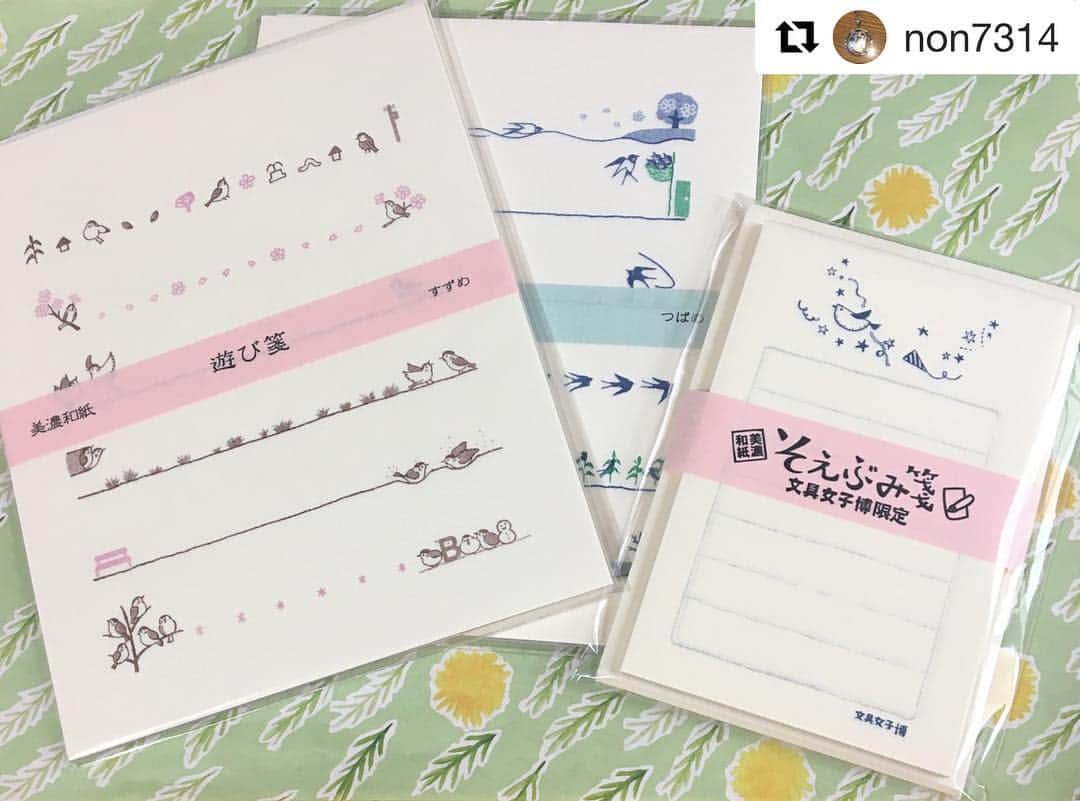 non7314
すずめ
遊び箋
美濃和紙
つばめ
美濃
和紙
そえぶみ箋
文具女子博限定
文具女子博
B